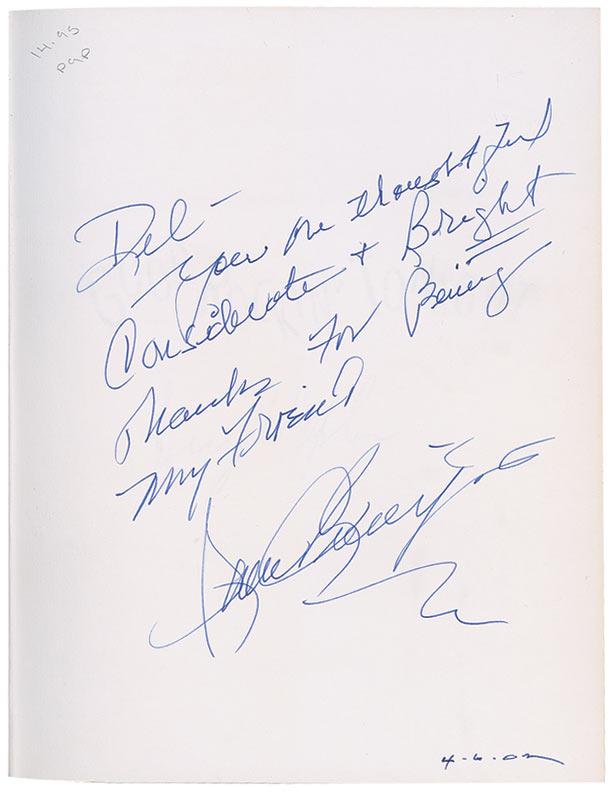 14.95
Del -
you are thoughtful
Considerate + Bright
Thanks For Being
My Friend
4-6-02